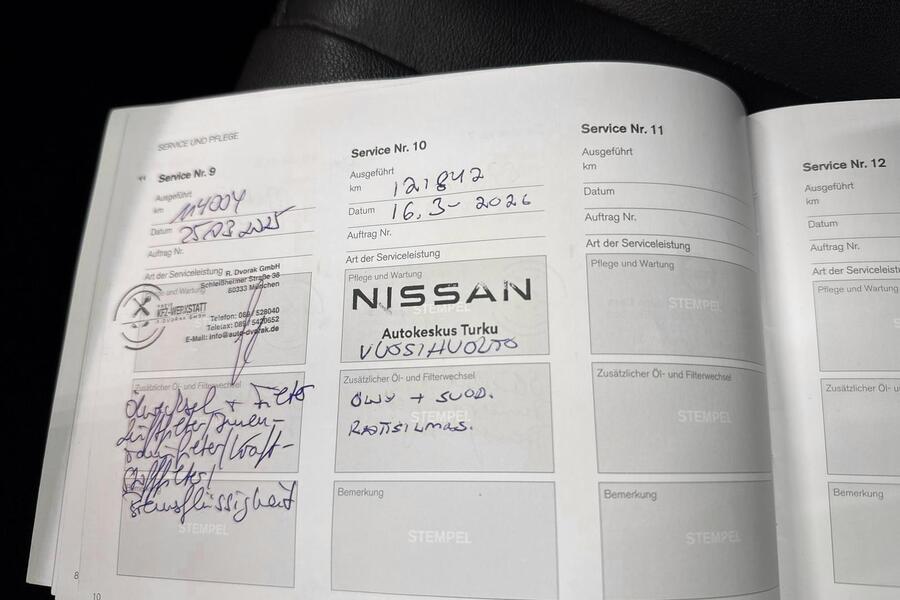 SERVICE UND PFLEGE
Service Nr. 9
Ausgeführt
km 114004
Datum 25.03.2025
Auftrag Nr.
Art der Serviceleistung
Pflege und Wartung
R. Dvorak GmbH
Schleißheimer Straße 38
80333 München
KFZ-WERKSTATT
R. DVORAK GMBH
Telefon: 089/ 528040
Telefax: 089/ 5420652
E-Mail: info@auto-dvorak.de
Zusätzlicher Öl- und Filterwechsel
Ölwechsel + Filter
Luftfilter/Innen-
raumfilter/Kraft-
stofffilter/
Bremsflüssigkeit
STEMPEL
8
Service Nr. 10
Ausgeführt
km 121842
Datum 16.3-2026
Auftrag Nr.
Art der Serviceleistung
Pflege und Wartung
NISSAN
Autokeskus Turku
VUOSIHUOLTO
Zusätzlicher Öl- und Filterwechsel
STEMPEL
ÖLJY + SUOD.
RAITISILMAS.
Bemerkung
STEMPEL
10
Service Nr. 11
Ausgeführt
km
Datum
Auftrag Nr.
Art der Serviceleistung
Pflege und Wartung
STEMPEL
Zusätzlicher Öl- und Filterwechsel
STEMPEL
Bemerkung
STEMPEL
Service Nr. 12
Ausgeführt
km
Datum
Auftrag Nr.
Art der Serviceleist
Pflege und Wartung
Zusätzlicher Öl- u
Bemerkung